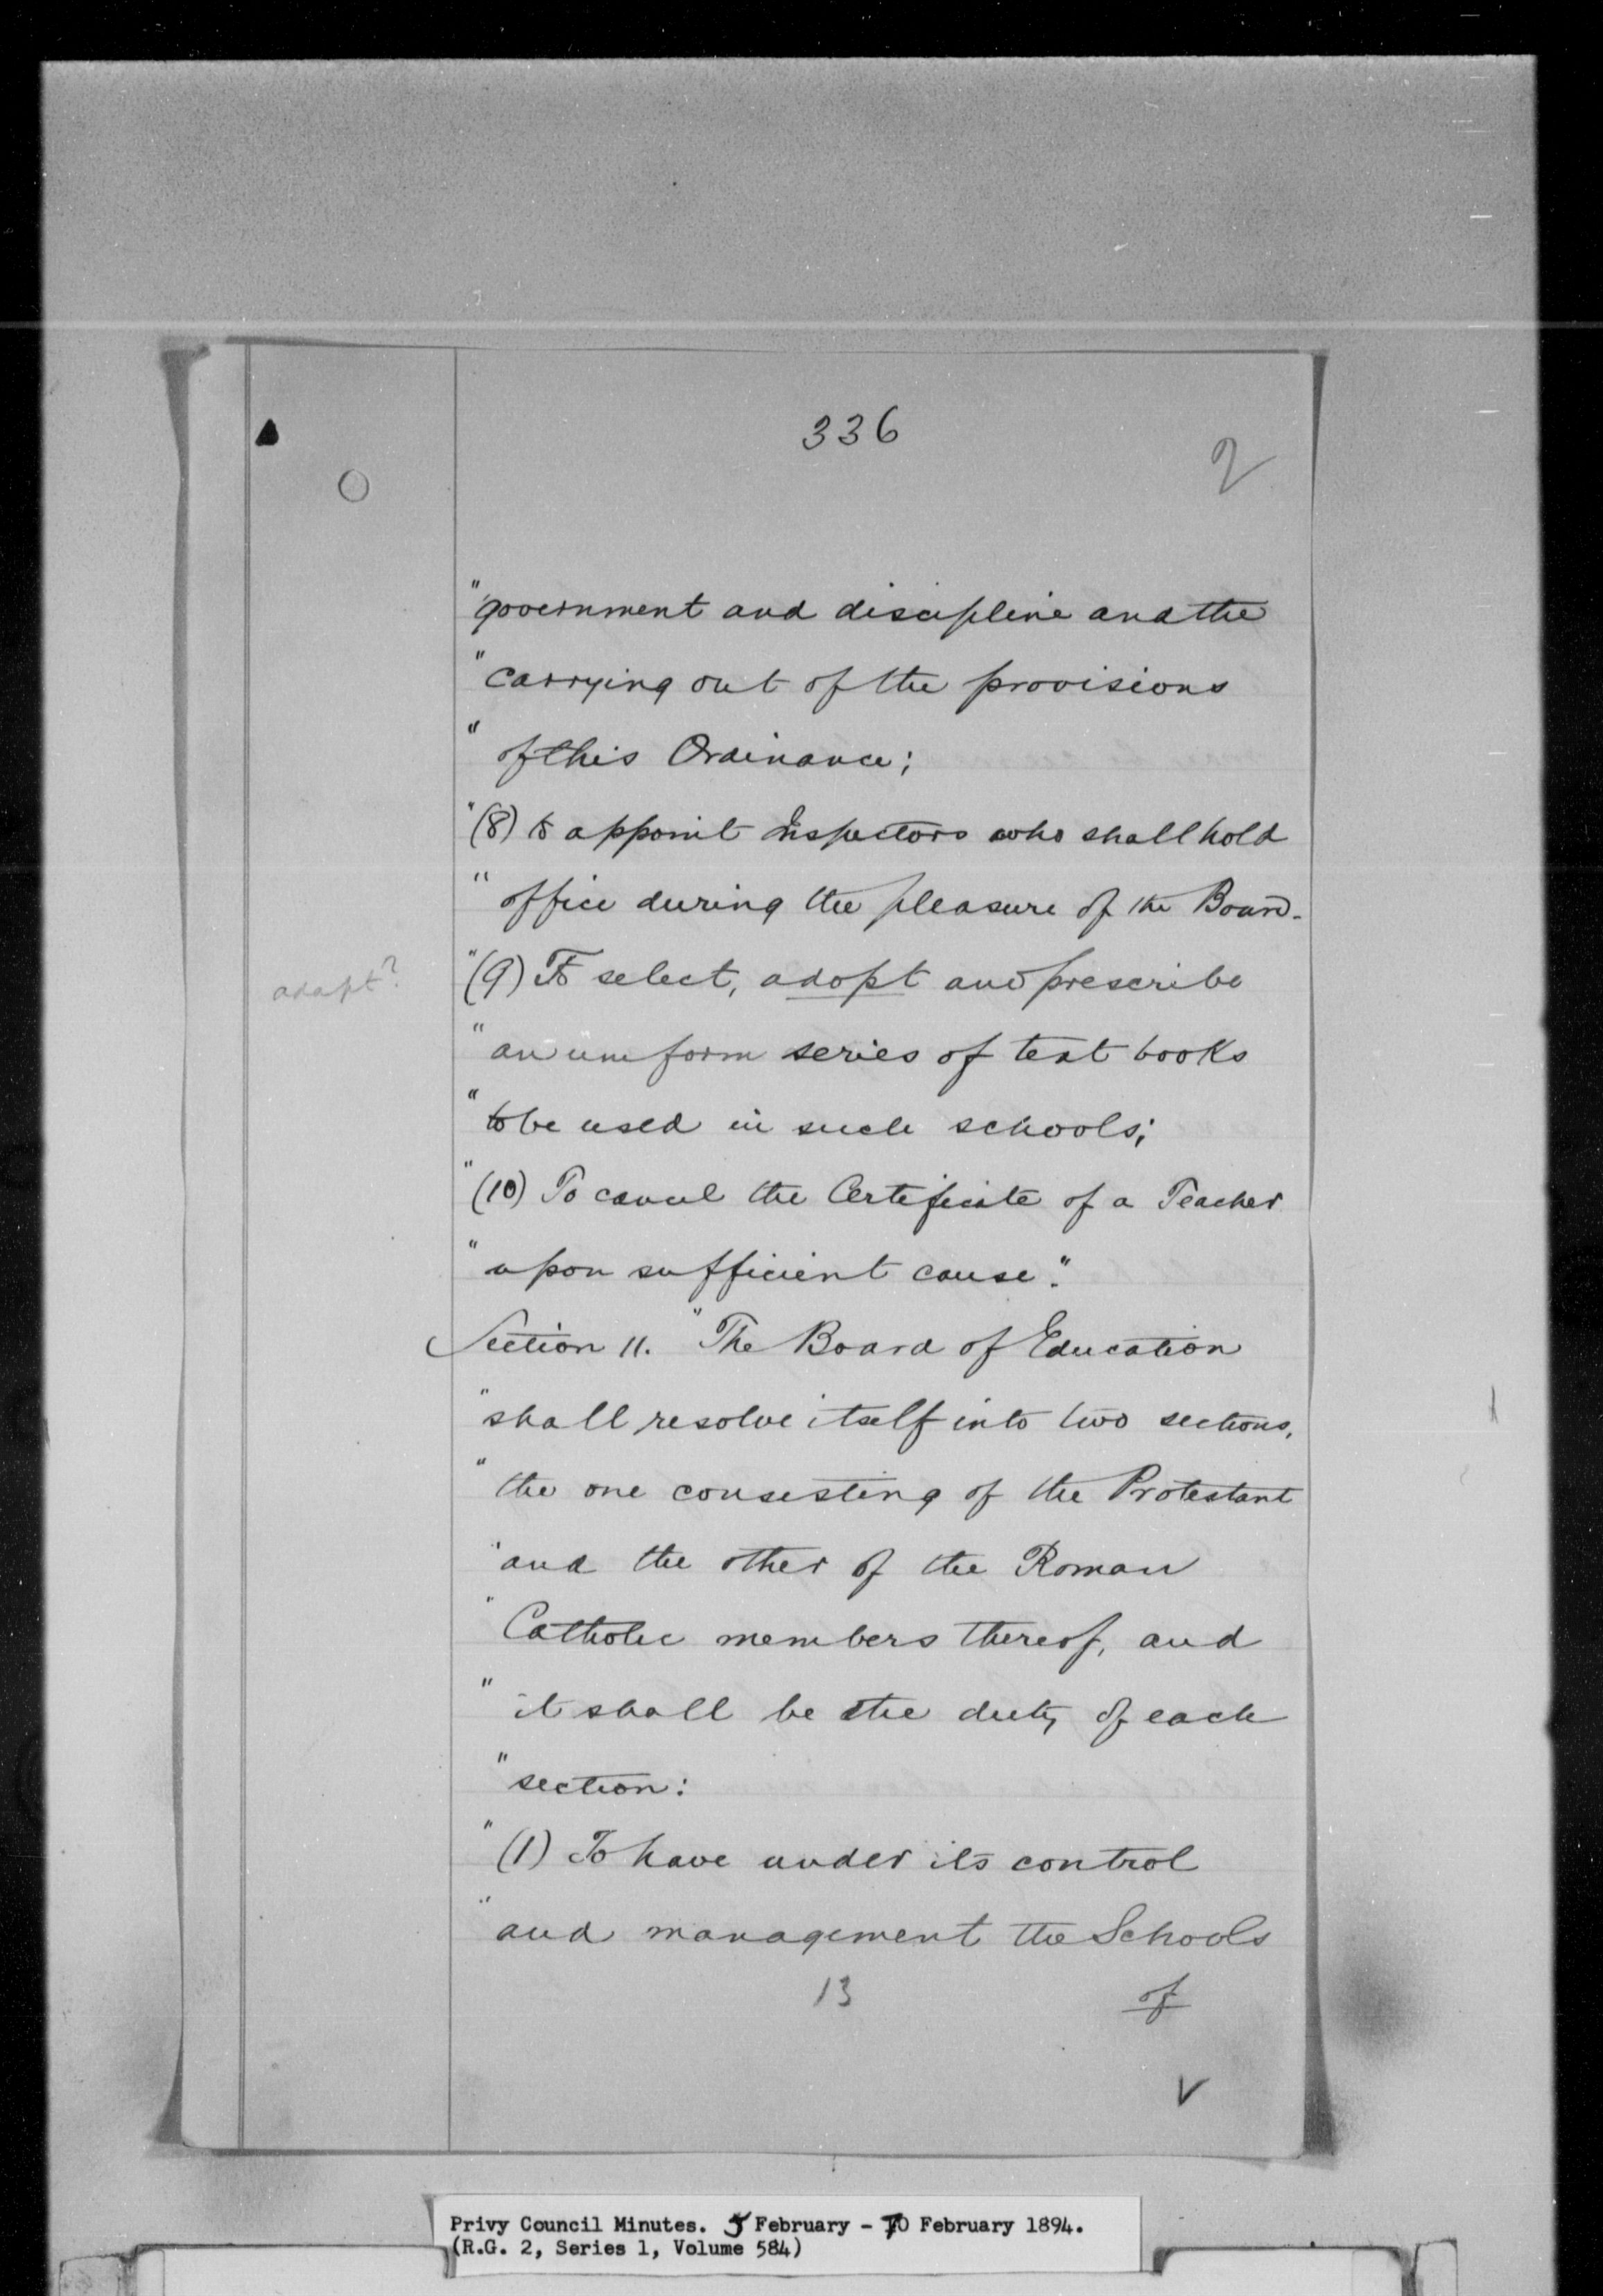 336
2
"government and discipline and the
"carrying out of the provisions
"of this Ordinance;
"(8) to appoint Inspectors who shall hold
"office during the pleasure of the Board.
adapt?
"(9) To select, adopt and prescribe
"an uniform series of text books
"to be used in such schools;
"(10) To cancel the Certificate of a Teacher
"upon sufficient cause."
Section 11. "The Board of Education
"shall resolve itself into two sections,
"the one consisting of the Protestant
"and the other of the Roman
"Catholic members thereof, and
"it shall be the duty of each
"section:
"(1) To have under its control
"and management the Schools
13
of
Privy Council Minutes. 5 February - 10 February 1894.
(R.G. 2, Series 1, Volume 584)